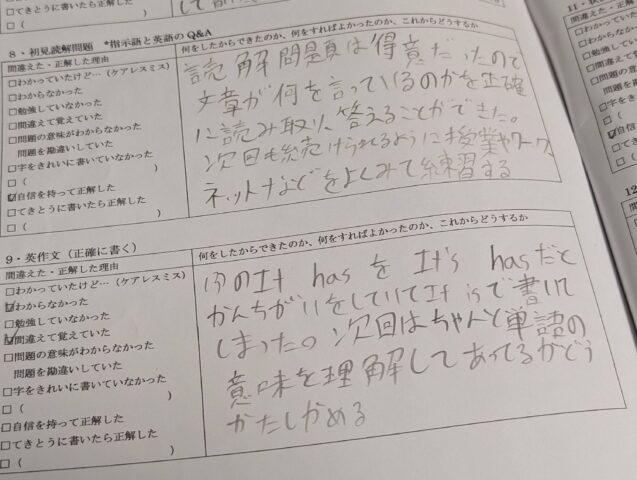 □わかっていたけど…（ケアレスミス）
□てきとうに書いたら正解した
□（　　　　　　　）
8・初見読解問題　*指示語と英語のQ&A
間違えた・正解した理由
何をしたからできたのか、何をすればよかったのか、これからどうするか
□わかっていたけど…（ケアレスミス）
□わからなかった
□勉強していなかった
□間違えて覚えていた
□問題の意味がわからなかった
問題を勘違いしていた
□字をきれいに書いていなかった
□（　　　　　　　）
☑自信を持って正解した
□てきとうに書いたら正解した
□（　　　　　　　）
読解問題は得意だったので
文章が何を言っているのかを正確
に読み取り、答えることができた。
次回も続けられるように授業やワーク、
ネットなどをよくみて練習する
9・英作文（正確に書く）
間違えた・正解した理由
何をしたからできたのか、何をすればよかったのか、これからどうするか
□わかっていたけど…（ケアレスミス）
☑わからなかった
□勉強していなかった
☑間違えて覚えていた
□問題の意味がわからなかった
問題を勘違いしていた
□字をきれいに書いていなかった
□（　　　　　　　）
□自信を持って正解した
□てきとうに書いたら正解した
□（　　　　　　　）
のIt hasをIt's hasだと
かんちがいをしていてIt isで書いて
しまった。次回はちゃんと単語の
意味を理解してあってるかどう
かたしかめる
11・
間違えた・正
□わかってい
□わからなか
□勉強してい
□間違えて
□問題の意
問題を勘
□字をき
□（
□てき
□（
12